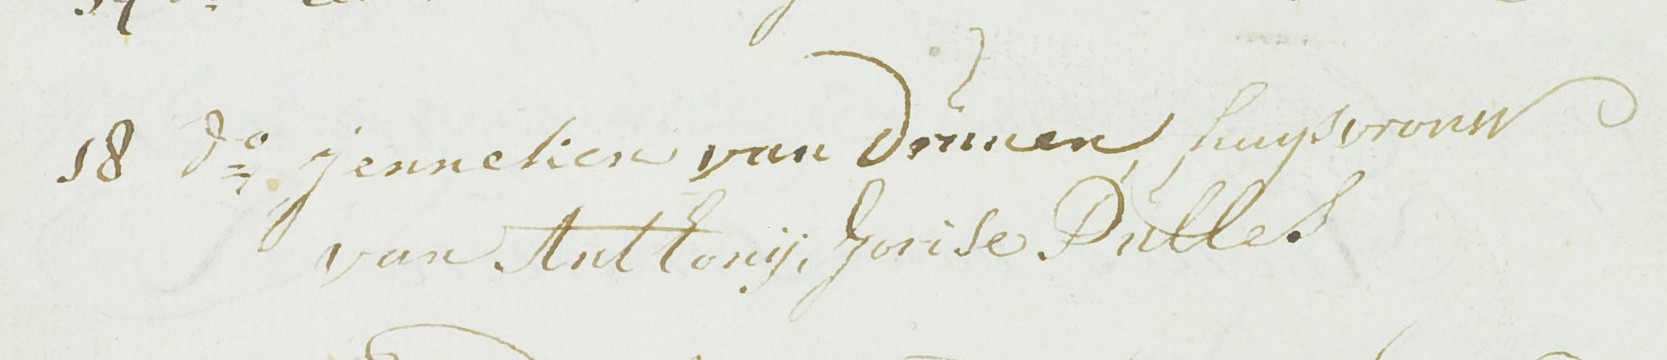 18 do Jenneken van Drunen, huysvrouw
van Anthonij, Jorise Dulles